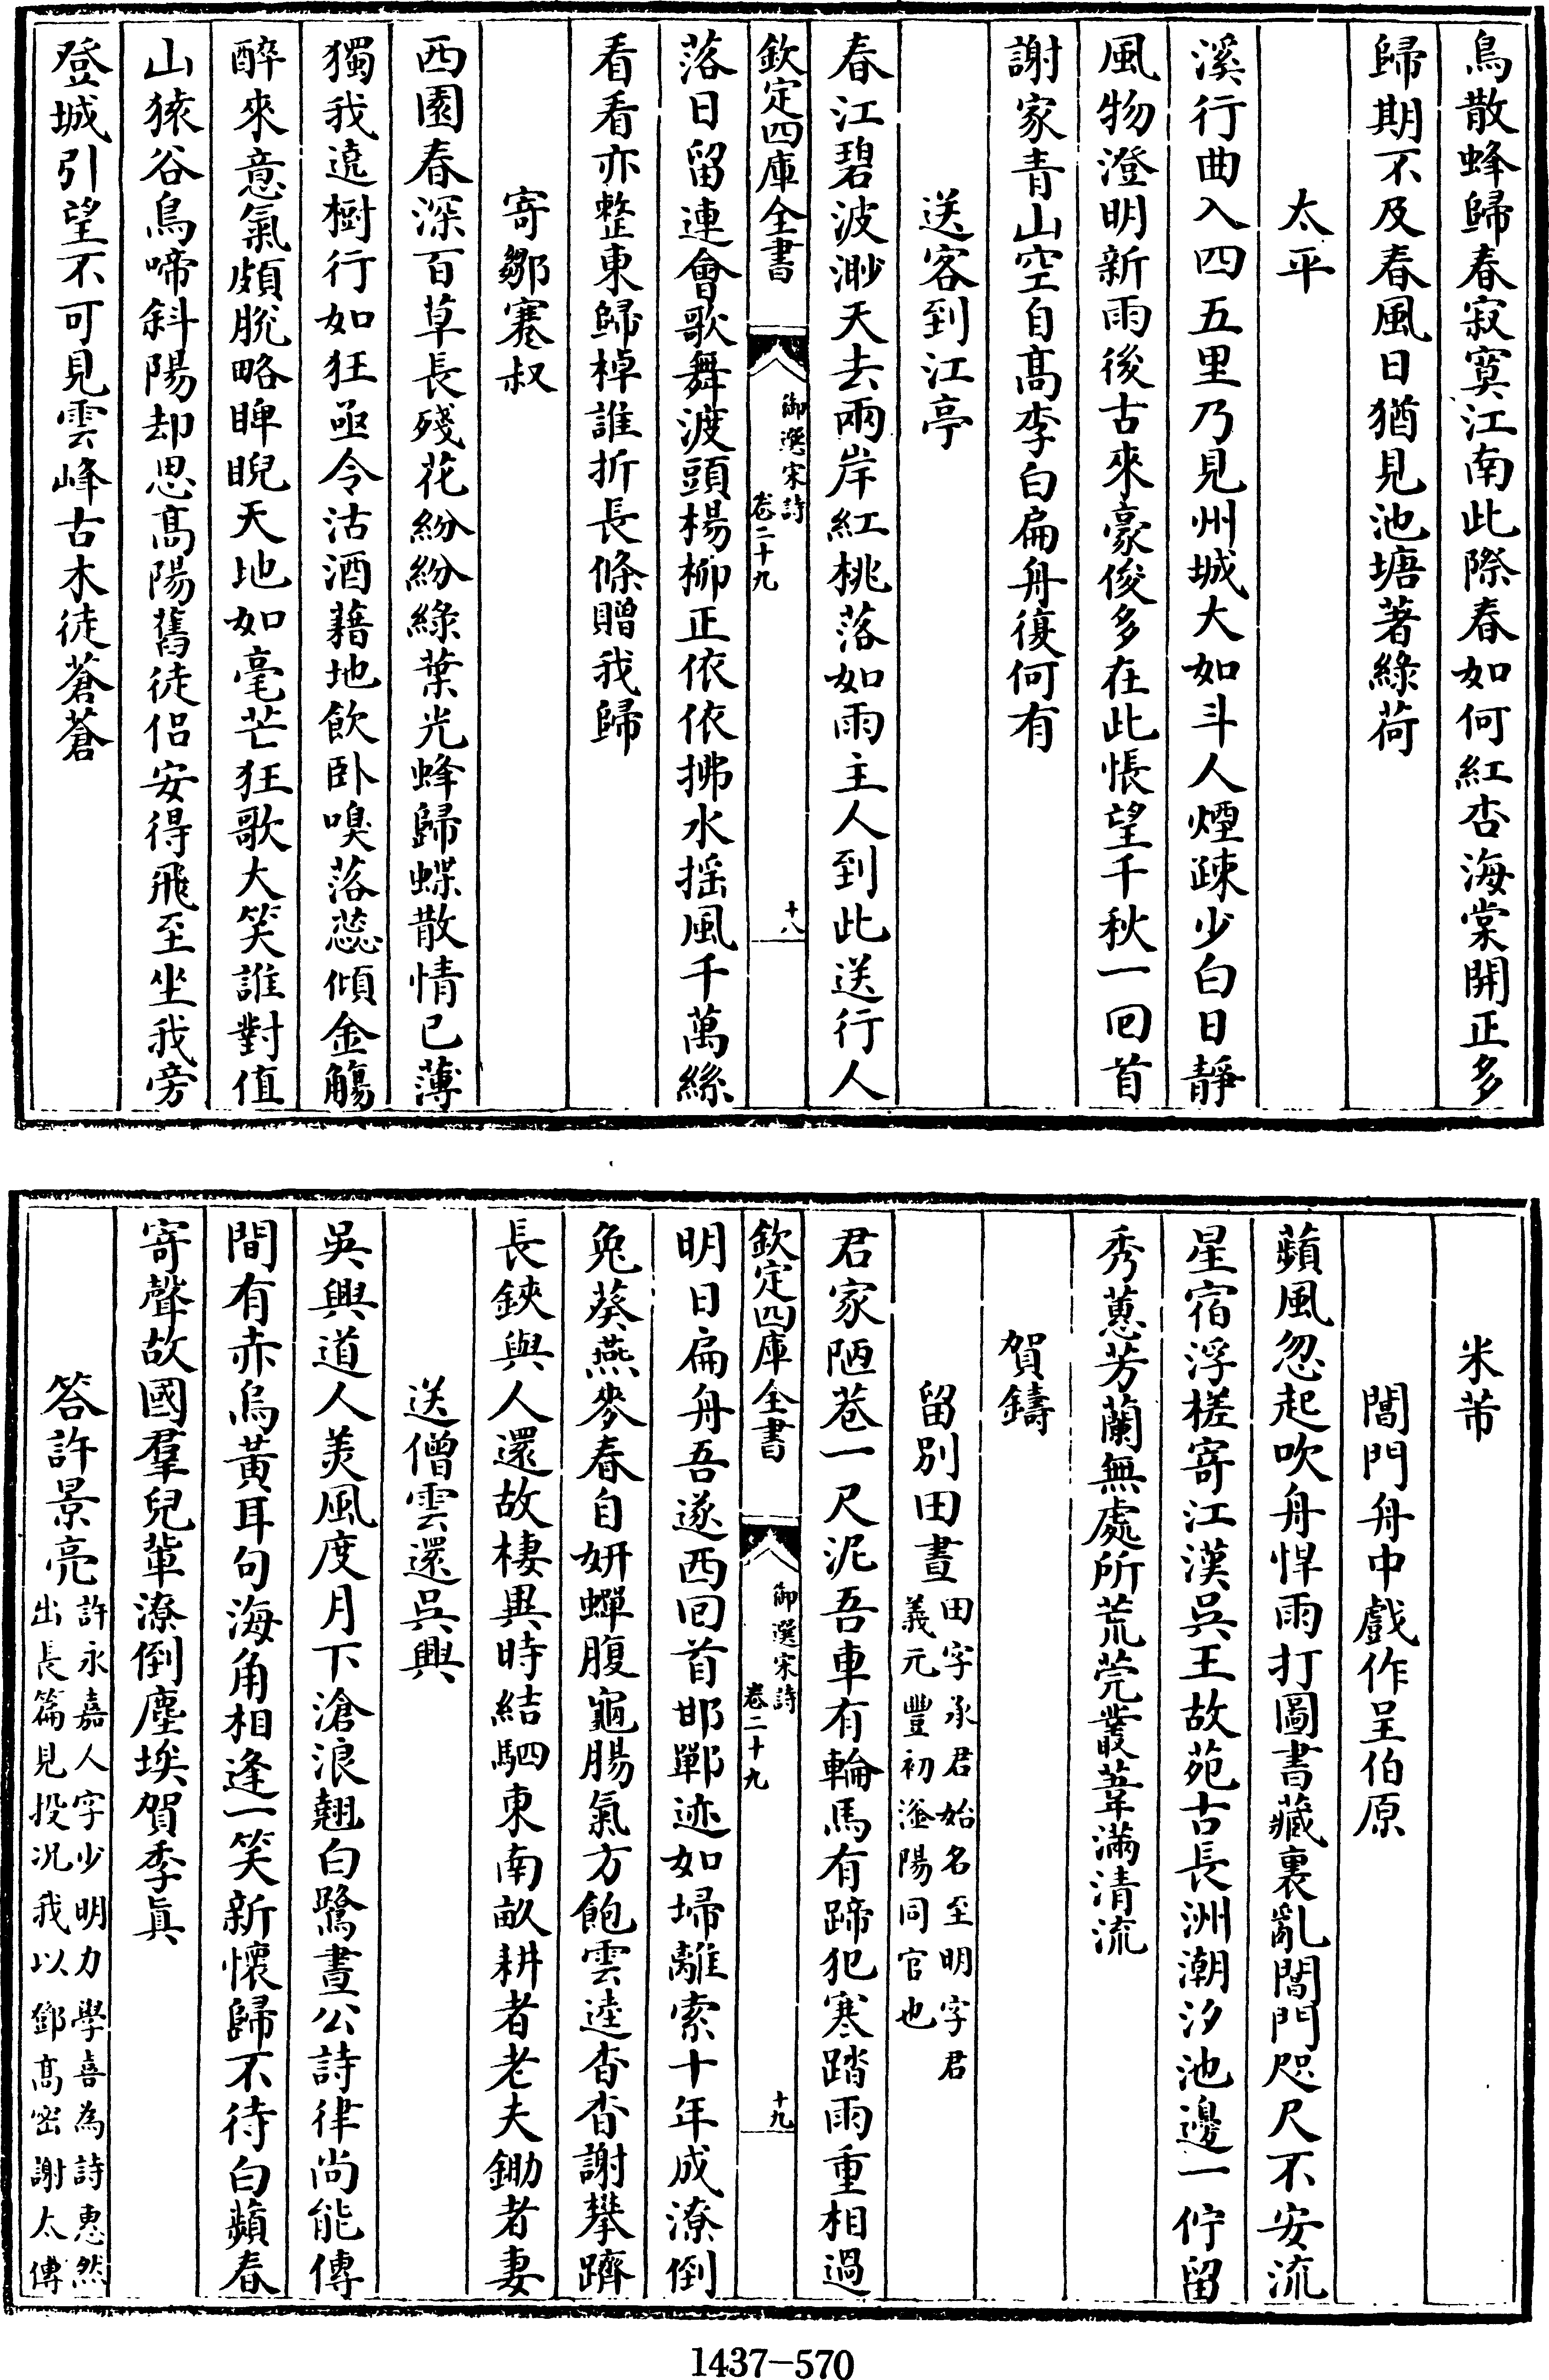 鳥散蜂歸春寂寞江南此際春如何紅杏海棠開正多
歸期不及春風日猶見池塘著綠荷
太平
溪行曲入四五里乃見州城大如斗人煙疎少白日靜
風物澄明新雨後古來豪俊多在此悵望千秋一回首
謝家青山空自高李白扁舟復何有
送客到江亭
春江碧波渺天去兩岸紅桃落如雨主人到此送行人
欽定四庫全書
御選宋詩
卷二十九
十八
落日留連會歌舞渡頭楊柳正依依拂水搖風千萬絲
看看亦整東歸棹誰折長條贈我歸
寄鄒蹇叔
西園春深百草長殘花紛紛綠葉光蜂歸蝶散情已薄
獨我遶樹行如狂亟令沽酒藉地飲卧嗅落蕊傾金觴
醉來意氣頗脫略睥睨天地如毫芒狂歌大笑誰對值
山猿谷鳥啼斜陽却思高陽舊徒侶安得飛至坐我旁
登城引望不可見雲峰古木徒蒼蒼
米芾
閶門舟中戲作呈伯原
蘋風忽起吹舟悍雨打圖書藏裏亂閶門咫尺不安流
星宿浮槎寄江漢吳王故苑古長洲潮汐池邊一佇留
秀蕙芳蘭無處所荒莞叢葦滿清流
賀鑄
留別田晝
田字承君始名至明字君
義元豐初滏陽同官也
君家陋巷一尺泥吾車有輪馬有蹄犯寒踏雨重相過
欽定四庫全書
御選宋詩
卷二十九
十九
明日扁舟吾遂西回首邯鄲迹如埽離索十年成潦倒
兔葵燕麥春自妍蟬腹龜腸氣方飽雲逵杳杳謝攀躋
長鋏與人還故棲異時結駟東南畝耕者老夫鋤者妻
送僧雲還吳興
吳興道人美風度月下滄浪翹白鷺晝公詩律尚能傳
間有赤烏黃耳句海角相逢一笑新懷歸不待白蘋春
寄聲故國羣兒輩潦倒塵埃賀季眞
答許景亮
許永嘉人字少明力學喜為詩惠然
出長篇見投况我以鄧高密謝太傅
1437-570